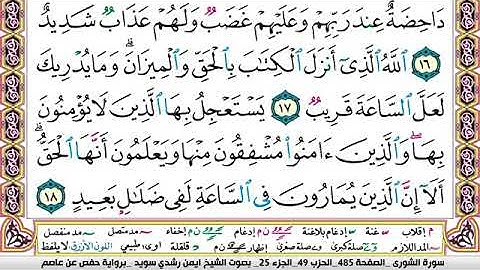 دَاحِضَةٌ عِندَ رَبِّهِمْ وَعَلَيْهِمْ غَضَبٌ وَلَهُمْ عَذَابٌ شَدِيدٌ
١٦ ٱللَّهُ ٱلَّذِىٓ أَنزَلَ ٱلْكِتَـٰبَ بِٱلْحَقِّ وَٱلْمِيزَانَ ۗ وَمَا يُدْرِيكَ
لَعَلَّ ٱلسَّاعَةَ قَرِيبٌ ١٧ يَسْتَعْجِلُ بِهَا ٱلَّذِينَ لَا يُؤْمِنُونَ
بِهَا ۖ وَٱلَّذِينَ ءَامَنُوا۟ مُشْفِقُونَ مِنْهَا وَيَعْلَمُونَ أَنَّهَا ٱلْحَقُّ ۗ
أَلَآ إِنَّ ٱلَّذِينَ يُمَارُونَ فِى ٱلسَّاعَةِ لَفِى ضَلَـٰلٍۭ بَعِيدٍ ١٨
م إقلاب غنة إدغام بلاغنة إدغام إخفاء مد متصل مد منفصل
المد اللازم صلة كبرى صلة صغرى إظهار قلقلة طبيعي اللون الأزرق لا يلفظ
سورة الشورى _الصفحة 485_الحزب 49_الجزء 25_ بصوت الشيخ ايمن رشدي سويد _برواية حفص عن عاصم